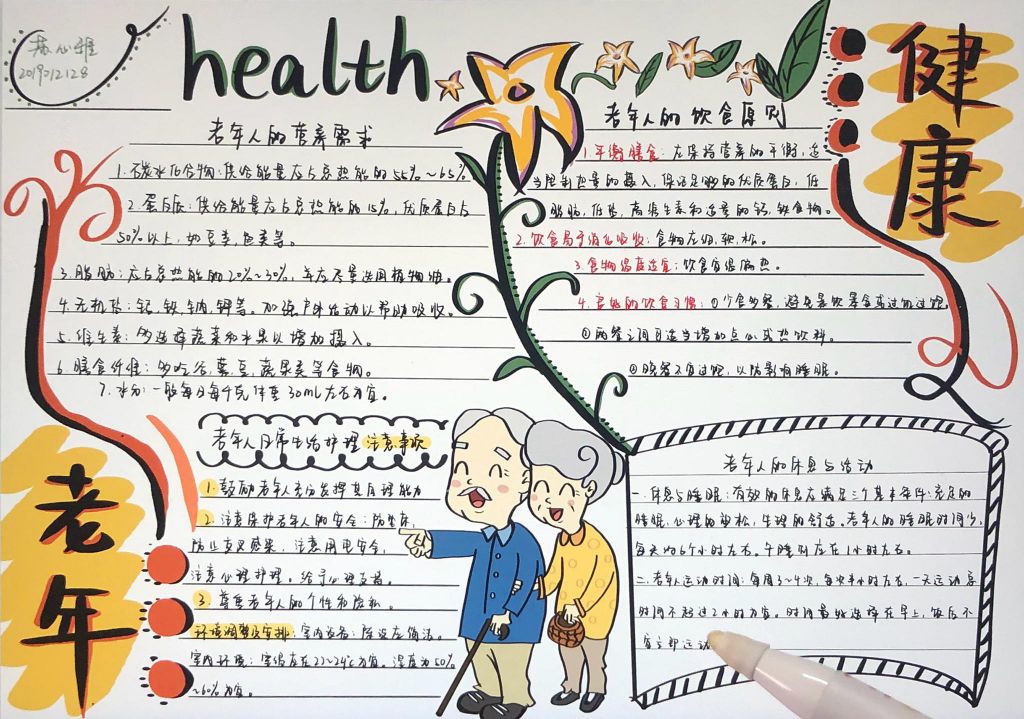 2019012128
health
健康
老年
老年人的营养需求
1.碳水化合物:供给能量应占总热能的55%~65%
2.蛋白质:供给能量应占总热能的15%,优质蛋白占
50%以上,如豆类,鱼类等。
3.脂肪:应占总热能的20%~30%,并应尽量选用植物油。
4.无机盐:钙、铁、钠、钾等。加强户外活动以帮助吸收。
5.维生素:多选择蔬菜和水果以增加摄入。
6.膳食纤维:多吃谷,薯,豆,蔬果类等食物。
7.水分:一般每日每千克体重30ml左右为宜。
老年人的饮食原则
1.平衡膳食:应保持营养的平衡,适
当限制热量的摄入,保证足够的优质蛋白,低
脂肪,低盐,高维生素和适量的钙,铁食物。
2.饮食易于消化吸收:食物应细,软,松。
3.食物温度适宜:饮食宜温偏热。
4.良好的饮食习惯:①少食多餐,避免暴饮暴食或过饥过饱
②两餐之间可适当增加点心或热饮料。
③晚餐不宜过饱,以防影响睡眠。
老年人日常生活护理注意事项
1.鼓励老年人充分发挥其自理能力
2.注意保护老年人的安全:防坠床,
防止交叉感染,注意用电安全,
注意心理护理。给予心理支持。
3.尊重老年人的个性和隐私。
环境调整及安排:室内设备:陈设应简洁。
室内环境:室温应在22~24℃为宜。湿度为50%
~60%为宜。
老年人的休息与活动
一.休息与睡眠:有效的休息应满足三个基本条件:充足的
睡眠,心理的放松,生理的舒适。老年人的睡眠时间少,
每天约6个小时左右。午睡则应在1小时左右。
二.老年人运动时间:每周3~4次,每次半小时左右,一天运动总
时间不超过2小时为宜。时间最好选择在早上,饭后不
宜立即运动